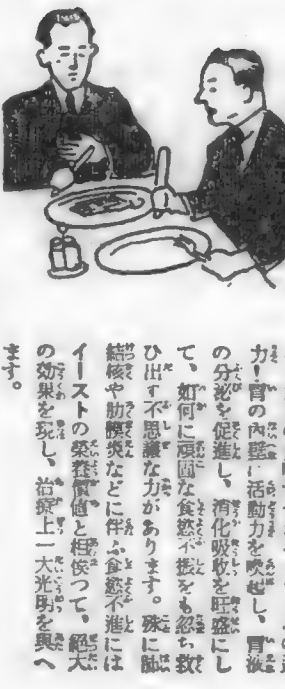 力！胃の内壁に活動力を喚起し、胃液
の分泌を促進し、消化吸收を旺盛にし
て、如何に頑固な食慾不振をも忽ち救
ひ出す不思議な力があります。殊に肺
結核や肋膜炎などに伴ふ食慾不進には
イーストの榮養價値と相俟つて、絕大
の効果を現し、治療上一大光明を與へ
ます。